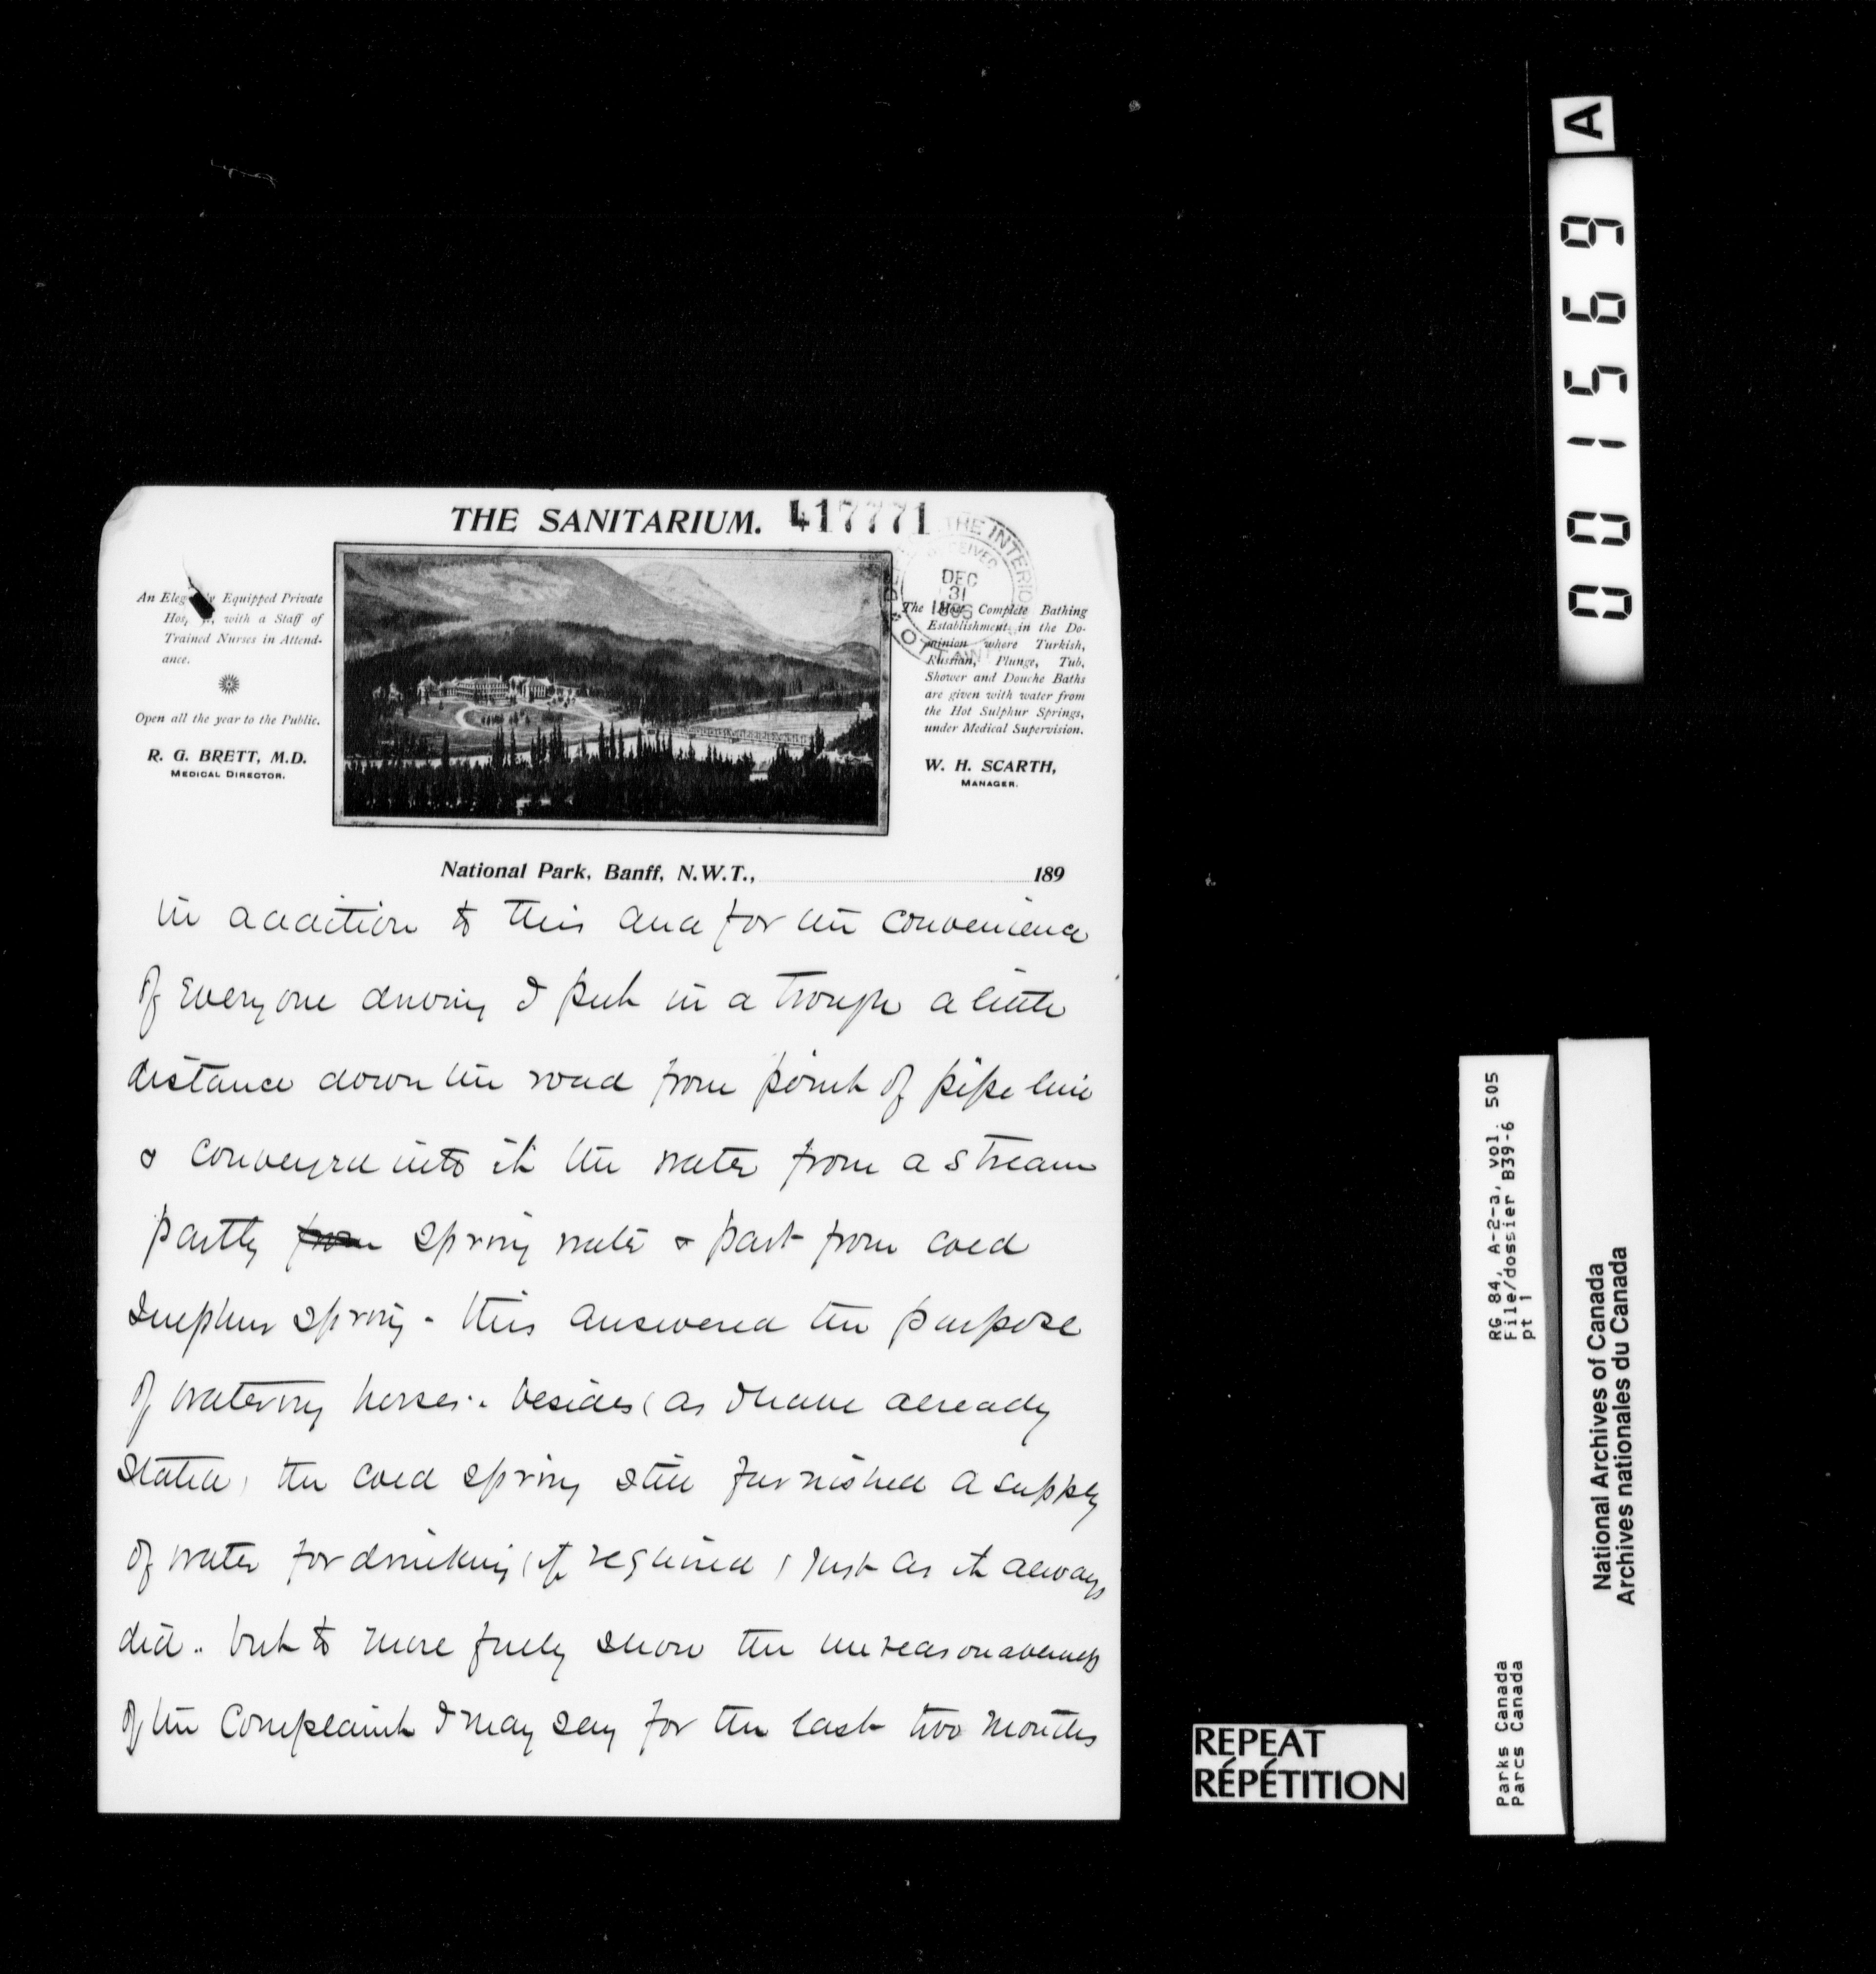 THE SANITARIUM.
417771
DEPT OF THE INTERIOR
RECEIVED
DEC
31
1896
OTTAWA
An Elegantly Equipped Private
Hospital, with a Staff of
Trained Nurses in Attend-
ance.
Open all the year to the Public.
R. G. BRETT, M.D.
MEDICAL DIRECTOR.
The Most Complete Bathing
Establishment in the Do-
minion where Turkish,
Russian, Plunge, Tub,
Shower and Douche Baths
are given with water from
the Hot Sulphur Springs,
under Medical Supervision.
W. H. SCARTH,
MANAGER.
National Park, Banff, N.W.T., 189
in addition to this and for the convenience
of everyone driving I put in a trough a little
distance down the road from point of pipe line
& conveyed into it the water from a stream
partly from spring water & part from cold
sulphur spring - this answered the purpose
of watering horses. besides (as I have already
stated) the cold spring still furnished a supply
of water for drinking (if required) just as it always
did. but to more fully show the unreasonableness
of the complaint I may say for the last two months
A
001569
RG 84, A-2-a, vol. 505
File/dossier B39-6
pt 1
Parks Canada
Parcs Canada
National Archives of Canada
Archives nationales du Canada
REPEAT
RÉPÉTITION